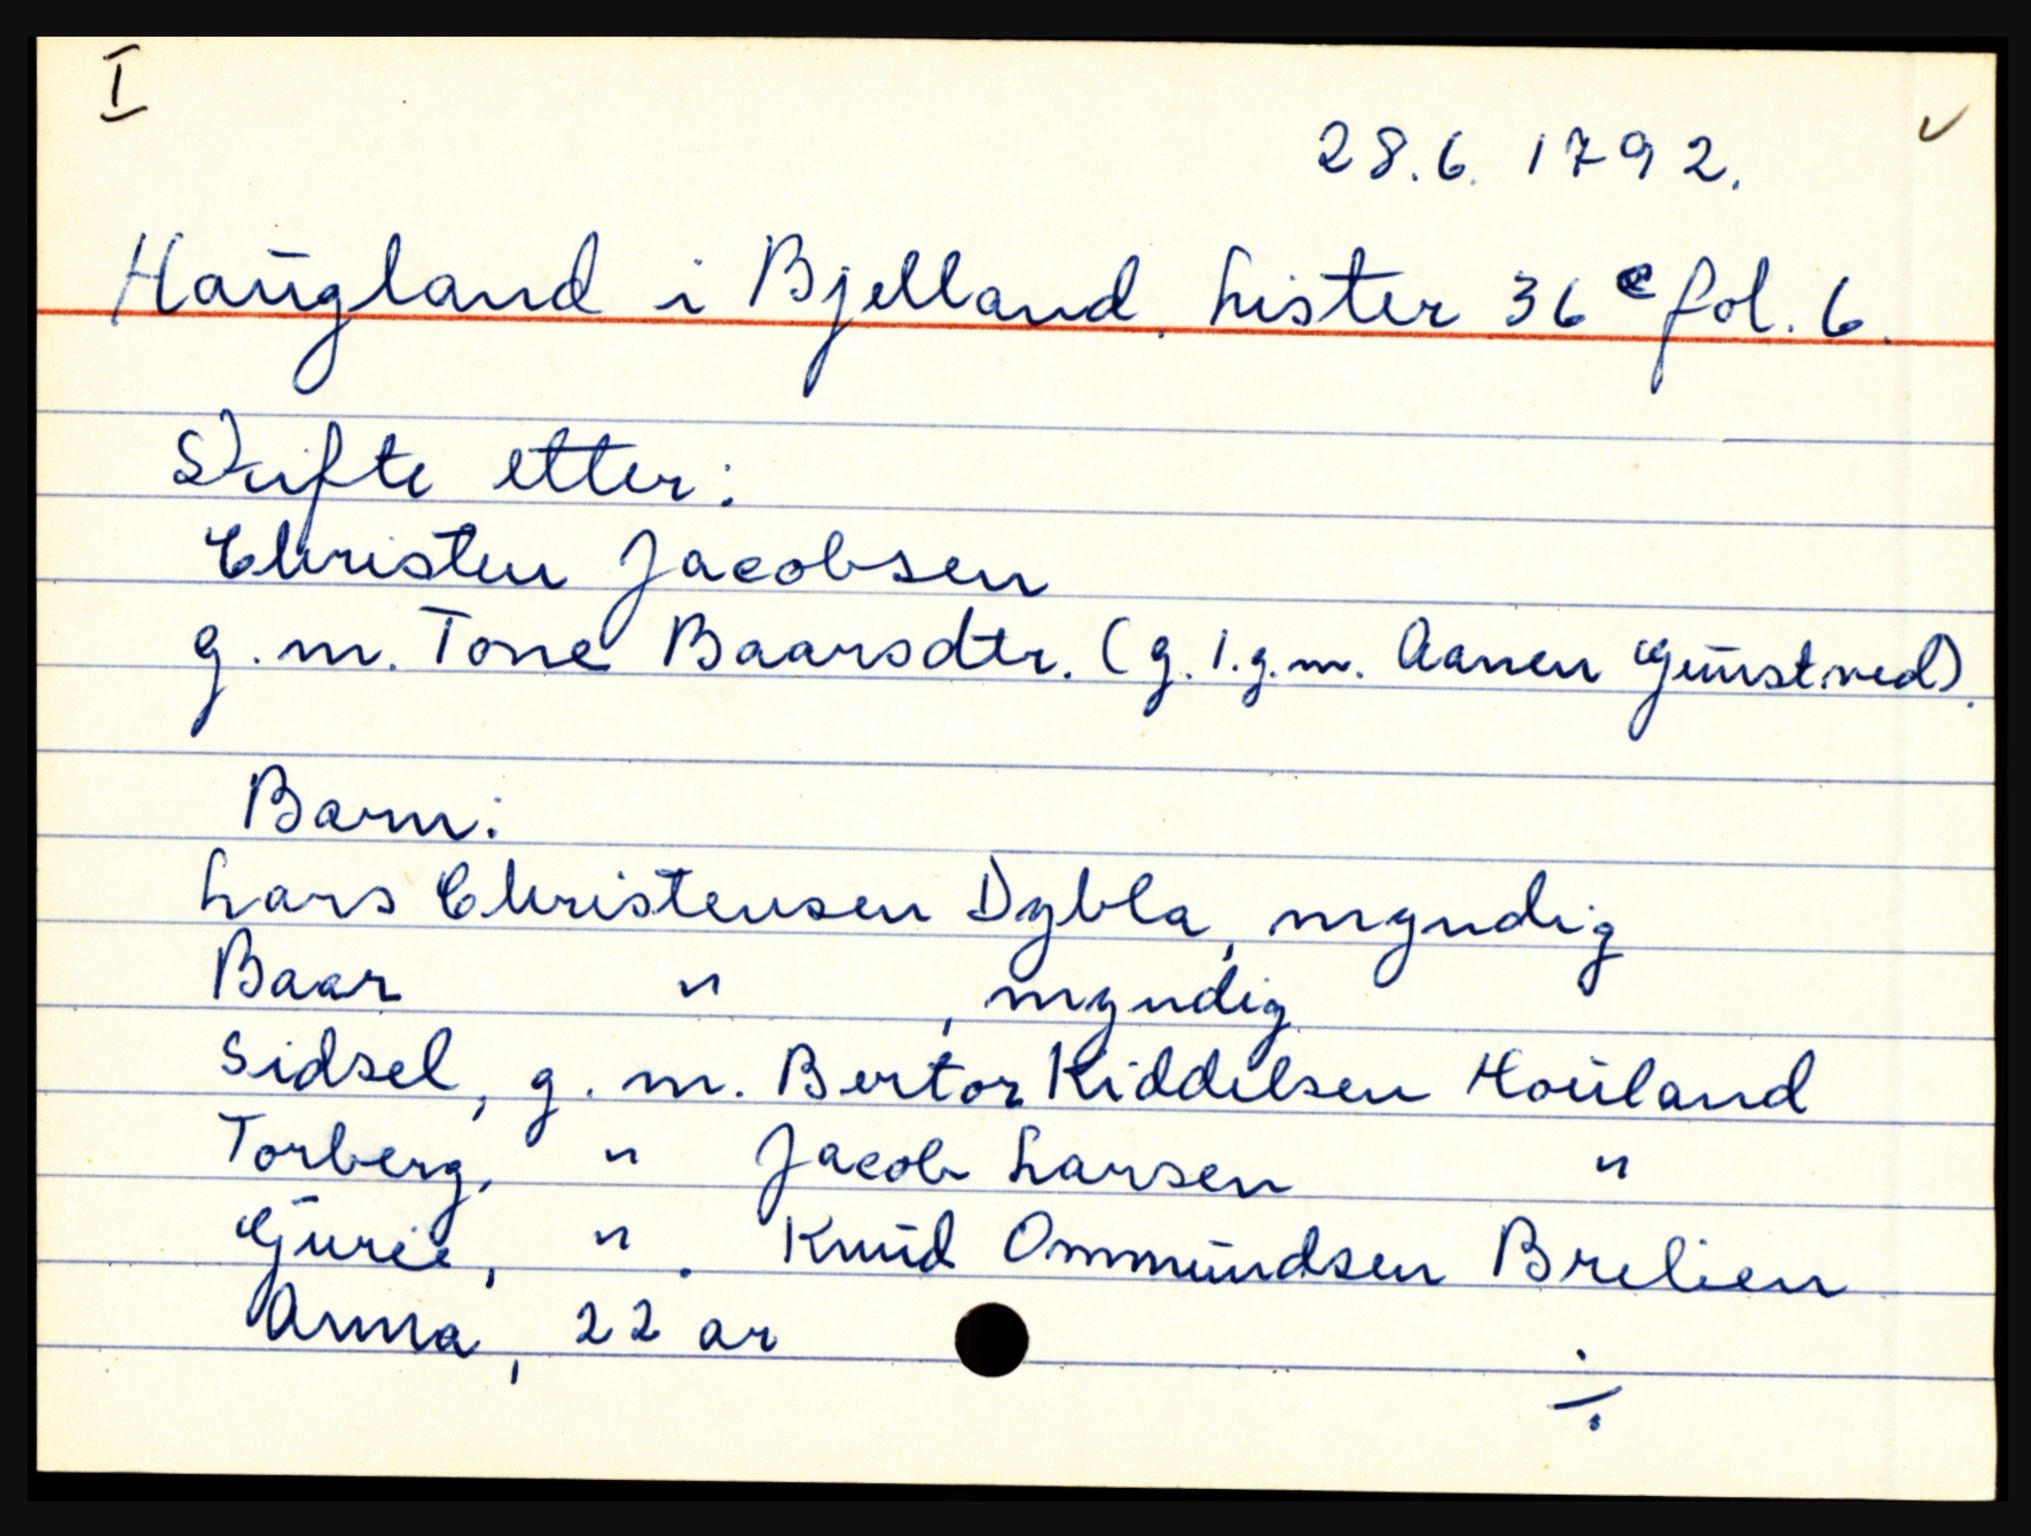 I
28.6. 1792. ✓
Haugland i Bjelland. Lister 36 c fol. 6.
Skifte etter:
Christen Jacobsen
g.m. Tone Baarsdtr. (g. 1.g.m. Aanen Gunstved).
Barn:
Lars Christensen Dybla, myndig
Baar " , myndig
Sidsel, g.m. Bertor Kiddelsen Houland
Torberg, " Jacob Larsen "
Gurie, " . Knud Ommundsen Brelien
Anna, 22 ar
÷